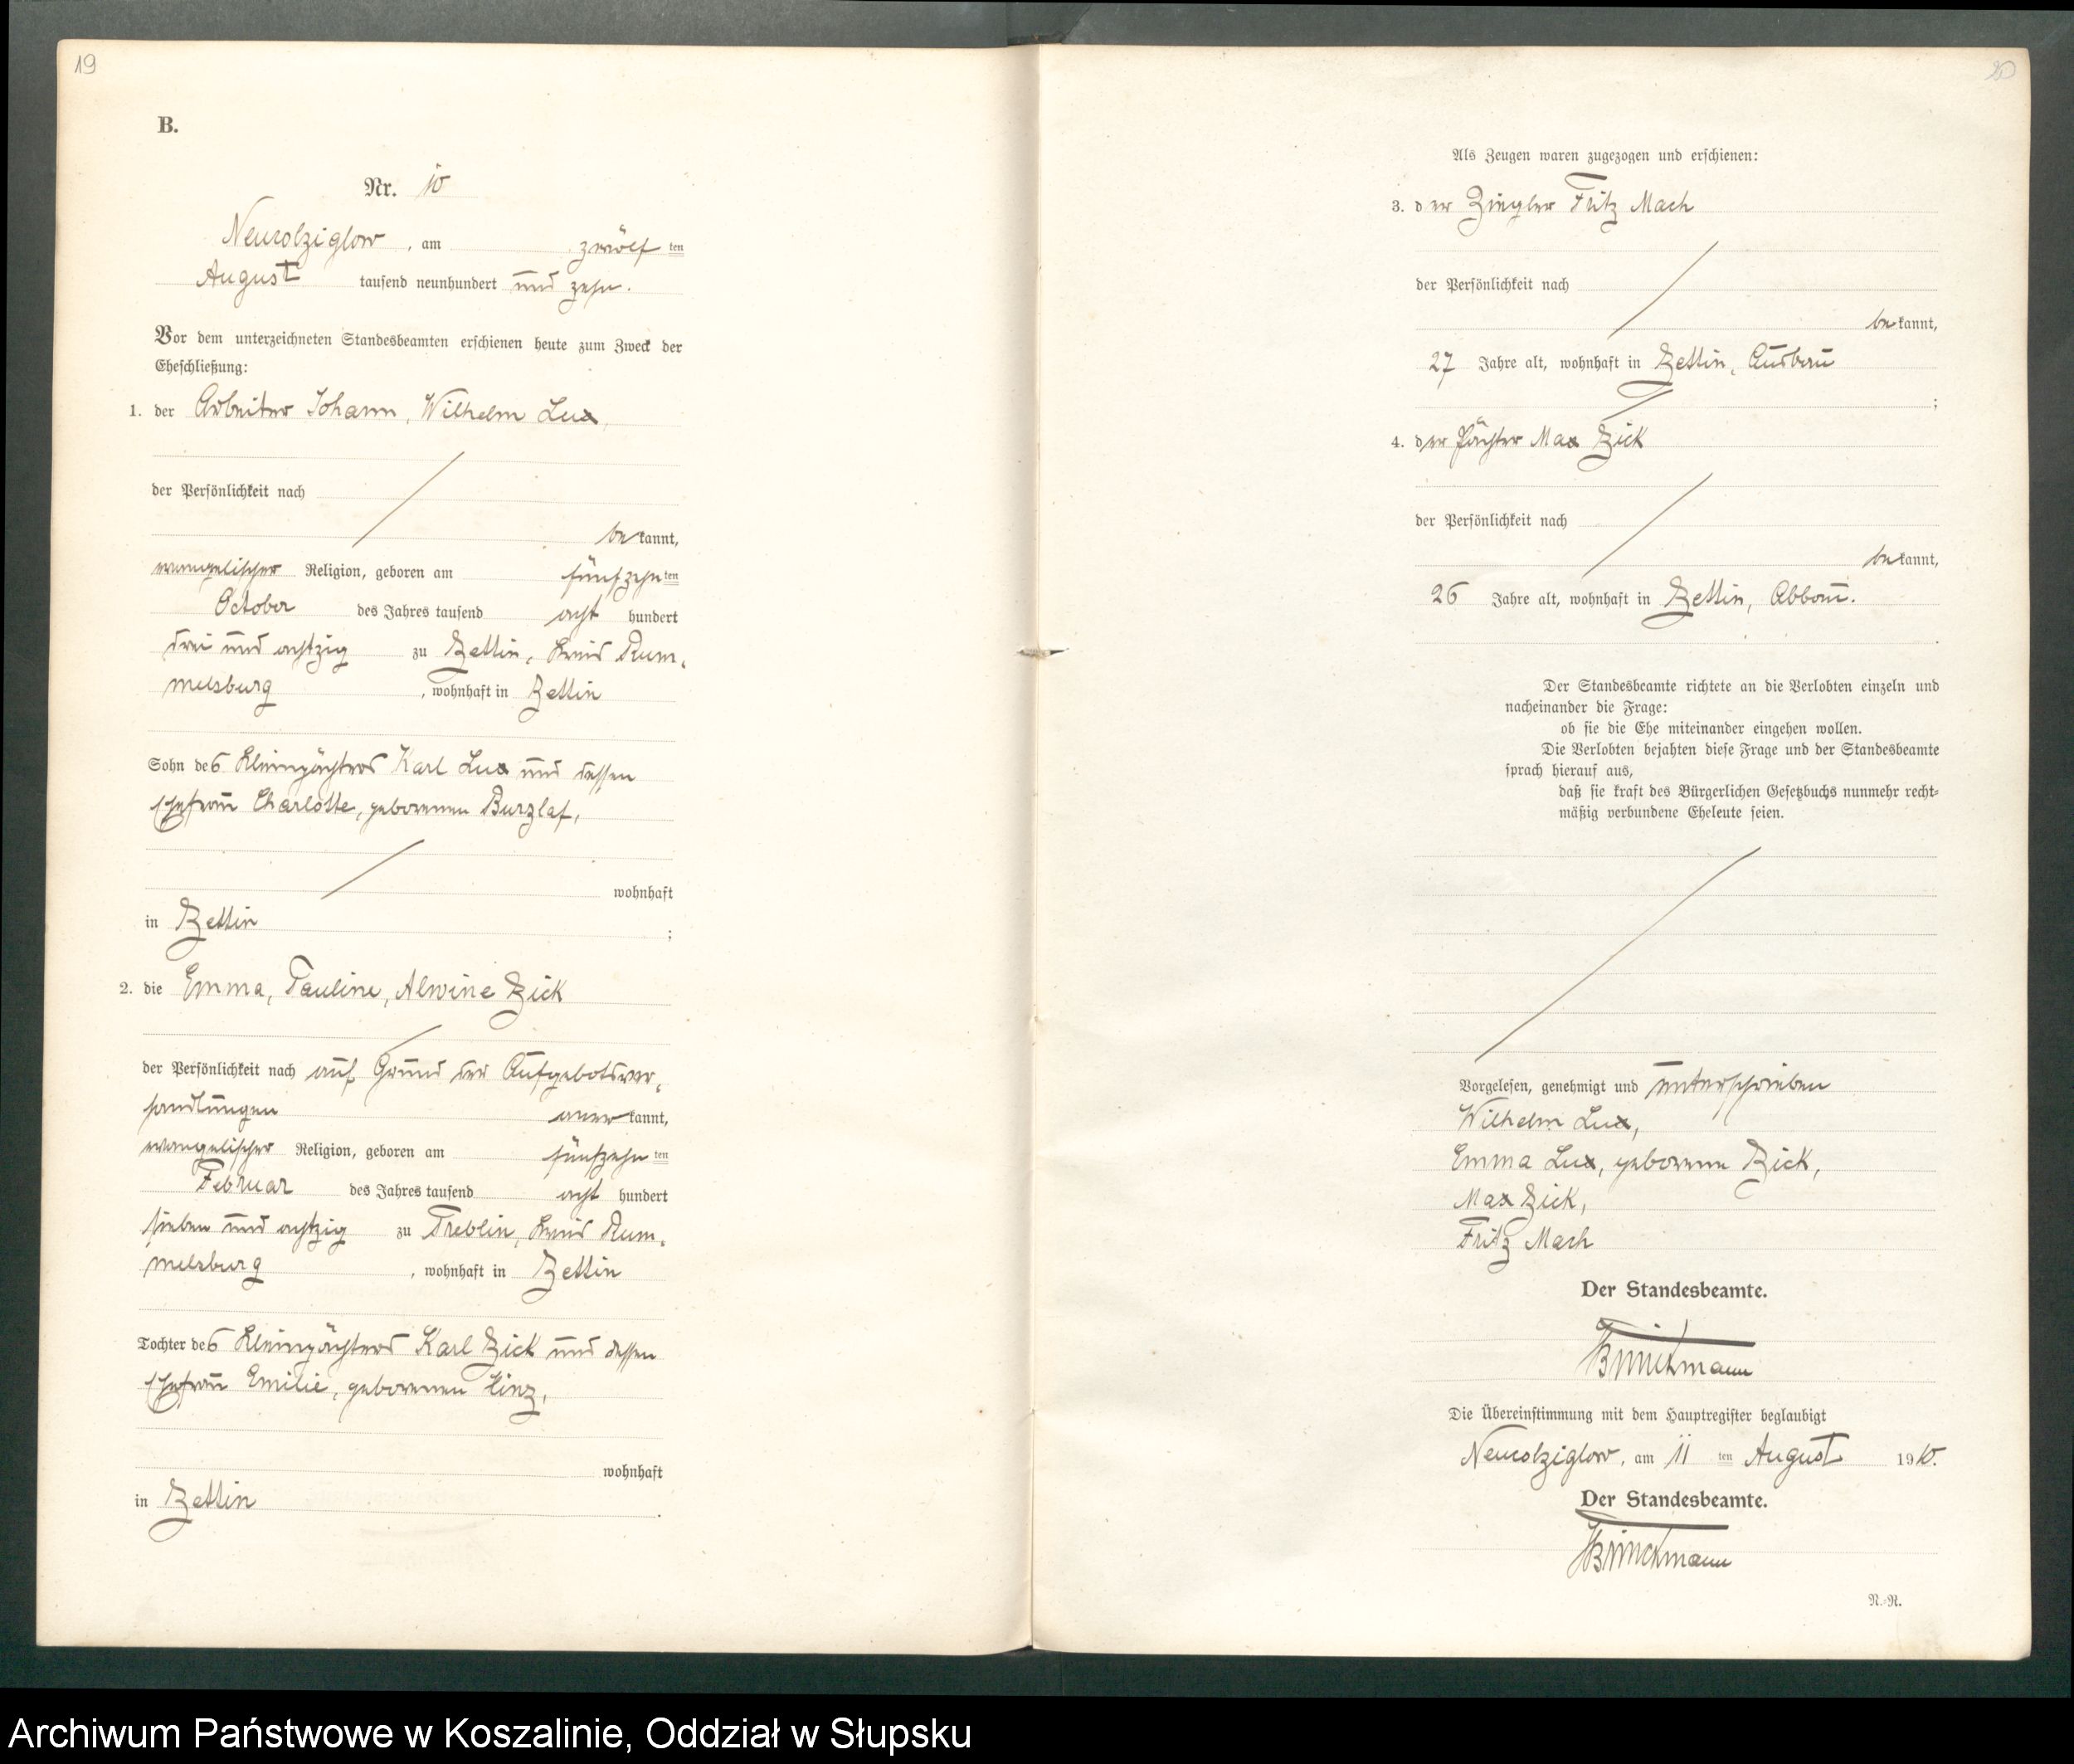 19
B.
Nr. 10
Neukolziglow, am zwölf ten
August tausend neunhundert und zehn.
Vor dem unterzeichneten Standesbeamten erschienen heute zum Zweck der
Eheschließung:
1. der Arbeiter Johann, Wilhelm Lux,
der Persönlichkeit nach
bekannt,
evangelischer Religion, geboren am fünfzehn ten
October des Jahres tausend acht hundert
drei und achtzig zu Zettin, Kreis Rum-
melsburg, wohnhaft in Zettin
Sohn des Kleinpächters Karl Lux und dessen
Ehefrau Charlotte, geborenen Burzlaf,
wohnhaft
in Zettin ;
2. die Emma, Pauline, Alwine Zick
der Persönlichkeit nach auf Grund der Aufgebotsver-
handlungen anerkannt,
evangelischer Religion, geboren am fünfzehn ten
Februar des Jahres tausend acht hundert
sieben und achtzig zu Treblin, Kreis Rum-
melsburg, wohnhaft in Zettin
Tochter des Kleinpächters Karl Zick und dessen
Ehefrau Emilie, geborenen Hinz,
wohnhaft
in Zettin .
20
Als Zeugen waren zugezogen und erschienen:
3. der Ziegler Fritz Mach
der Persönlichkeit nach
bekannt,
27 Jahre alt, wohnhaft in Zettin, Ausbau
;
4. der Pächter Max Zick
der Persönlichkeit nach
bekannt,
26 Jahre alt, wohnhaft in Zettin, Abbau.
.
Der Standesbeamte richtete an die Verlobten einzeln und
nacheinander die Frage:
ob sie die Ehe miteinander eingehen wollen.
Die Verlobten bejahten diese Frage und der Standesbeamte
sprach hierauf aus,
daß sie kraft des Bürgerlichen Gesetzbuchs nunmehr recht-
mäßig verbundene Eheleute seien.
Vorgelesen, genehmigt und unterschrieben
Wilhelm Lux,
Emma Lux, geborene Zick,
Max Zick,
Fritz Mach
Der Standesbeamte.
Brinckmann
Die Übereinstimmung mit dem Hauptregister beglaubigt
Neukolziglow, am 11 ten August 1910.
Der Standesbeamte.
Brinckmann
N.-R.
Archiwum Państwowe w Koszalinie, Oddział w Słupsku